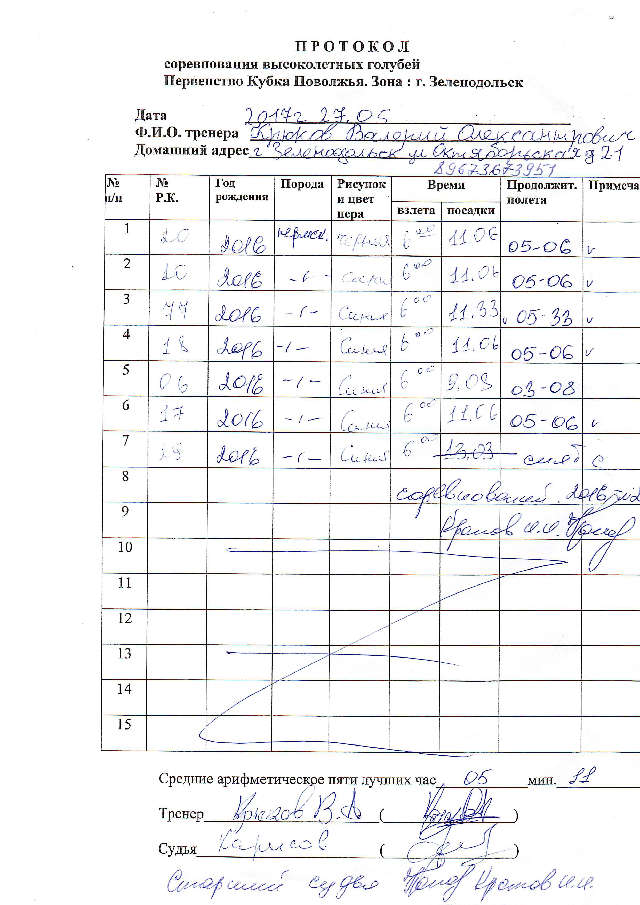 П Р О Т О К О Л
соревнования высоколетных голубей
Первенство Кубка Поволжья. Зона : г. Зеленодольск
Дата 2017г 27.05
Ф.И.О. тренера Крюков Валерий Александрович
Домашний адрес г Зеленодольск ул Октябрьская д 21
89673673951
№ п/п № Р.К. Год рождения Порода Рисунок и цвет пера Время Продолжит. полета Примеча
взлета посадки
1 20 2016 6 00 11 06 05-06 v
2 10 2016 -"- Синий 6 00 11.06 05-06 v
3 77 2016 -"- Синий 6 00 11.33 v 05-33 v
4 18 2016 -"- Синий 6 00 11.06 05-06 v
5 06 2016 -"- Синий 6 00 9.08 03-08
6 17 2016 -"- Синий 6 00 11.06 05-06 v
7 2016 -"- Синий 6 00 13.03 снят с
8 соревнований.
9 Кратов И.И.
10
11
12
13
14
15
Средние арифметическое пяти лучших час 05 мин. 11
Тренер Крюков В.А ( )
Судья ( )
Старший судья Кратов И.И.